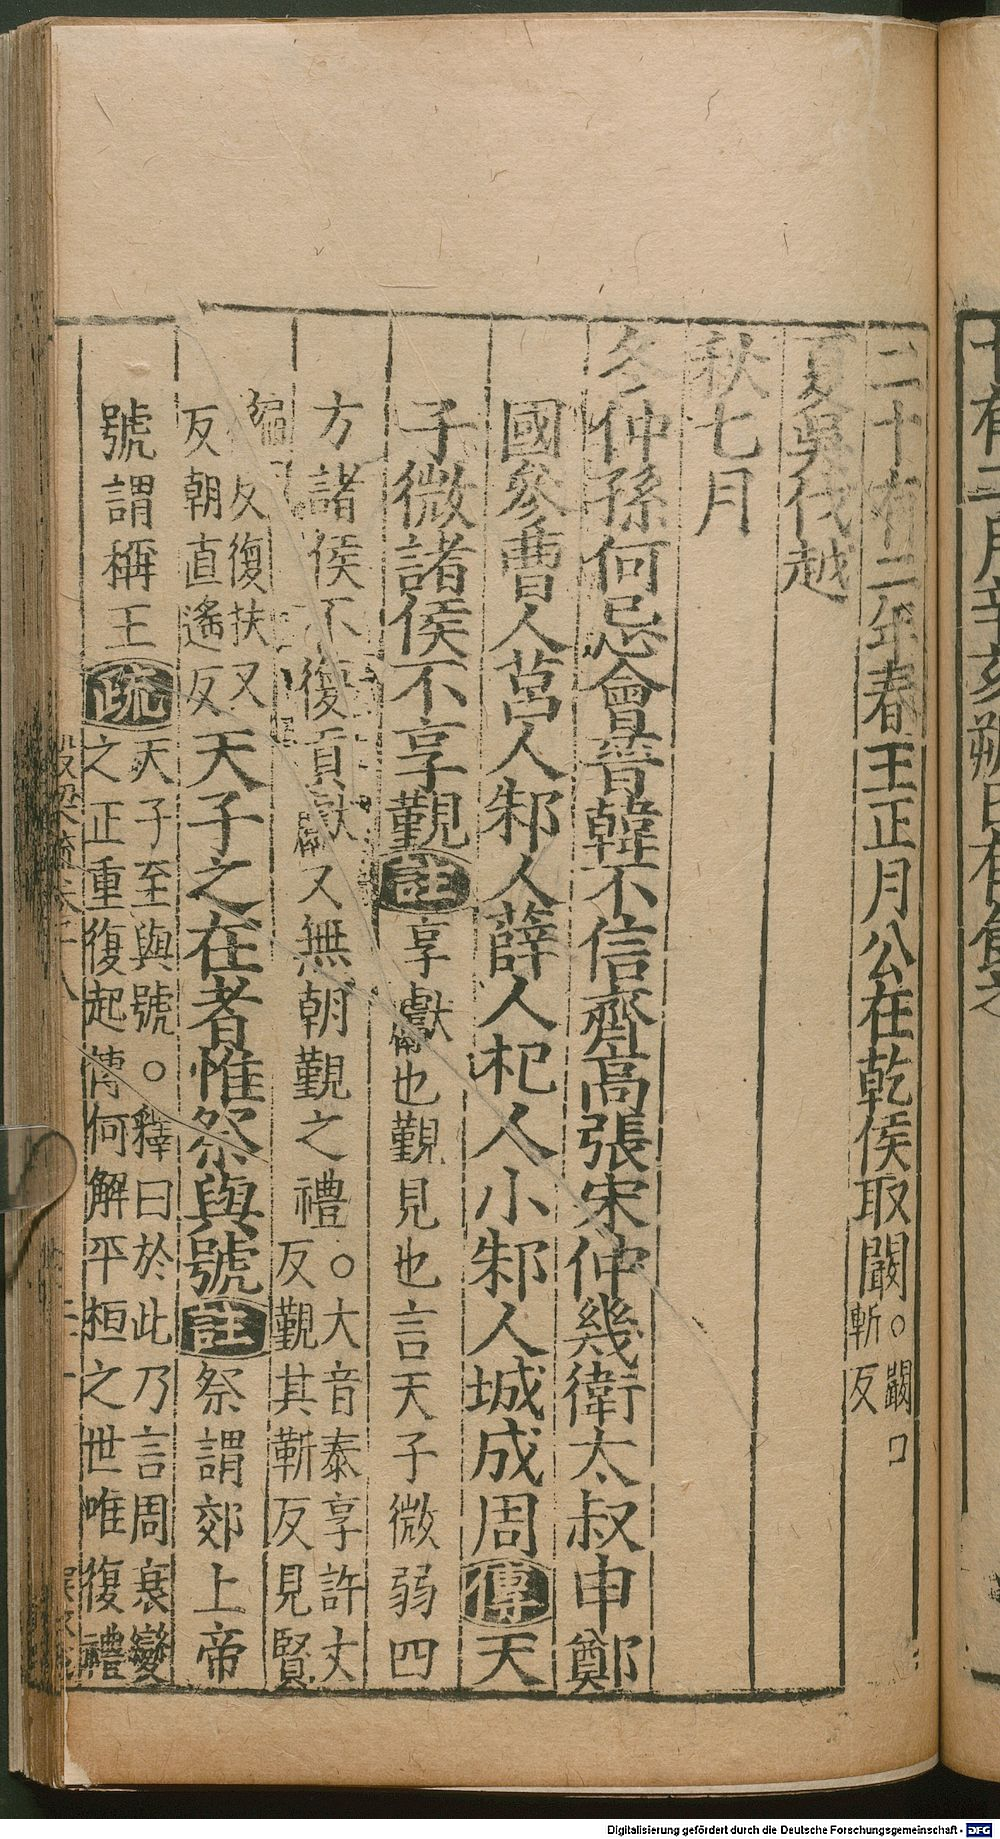 二十有二年春王正月公在乾侯取闞。闞口
斬反
夏吳伐越
秋七月
冬仲孫何忌會晉韓不信齊高張宋仲幾衛太叔申鄭
國參曹人莒人邾人薛人杞人小邾人城成周傳天
子微諸侯不享覲註享獻也覲見也言天子微弱四
方諸侯不復貢獻又無朝覲之禮。大音泰享許丈
反覲其靳反見賢
徧反復扶又
反朝直遙反天子之在者惟祭與號註祭謂郊上帝
號謂稱王疏天子至與號。釋曰於此乃言周衰變
之正重復起傳何解平桓之世唯復禮
Digitalisierung gefördert durch die Deutsche Forschungsgemeinschaft - DFG